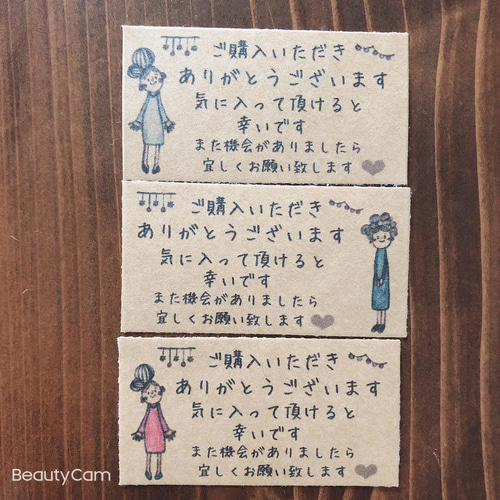 ご購入いただき
ありがとうございます
気に入って頂けると
幸いです
また機会がありましたら
宜しくお願い致します
ご購入いただき
ありがとうございます
気に入って頂けると
幸いです
また機会がありましたら
宜しくお願い致します
ご購入いただき
ありがとうございます
気に入って頂けると
幸いです
また機会がありましたら
宜しくお願い致します
BeautyCam